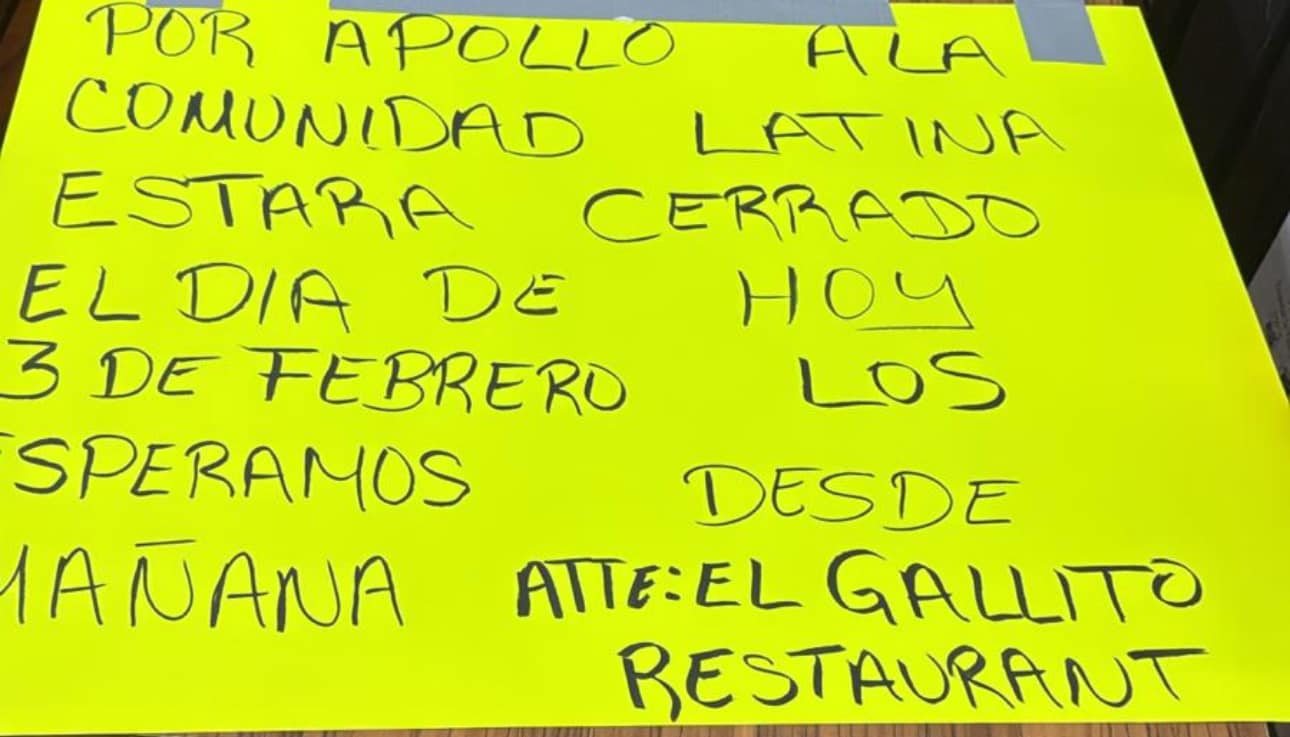 POR APOLLO A LA
COMUNIDAD LATINA
ESTARA CERRADO
EL DIA DE HOY
3 DE FEBRERO LOS
ESPERAMOS DESDE
MAÑANA ATTE: EL GALLITO
RESTAURANT